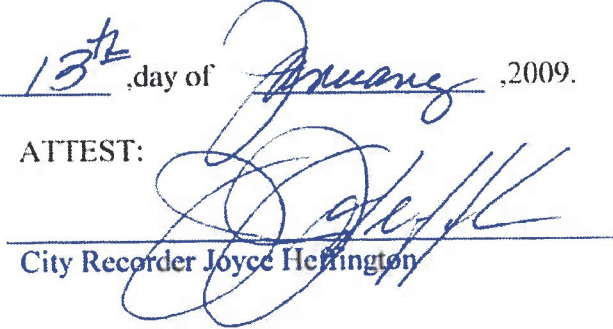 13th ,day of January ,2009.
ATTEST:
City Recorder Joyce Heffington